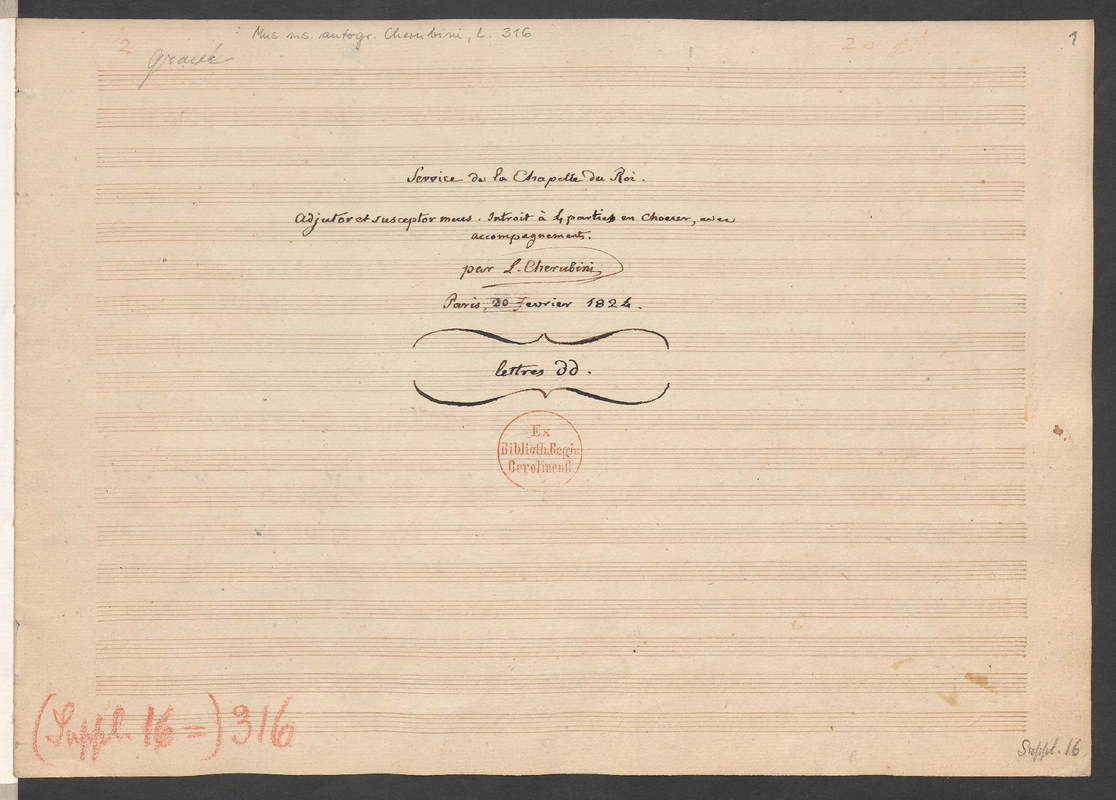 Mus. ms. autogr. Cherubini, L. 316
1
2
gravé
Service de la Chapelle du Roi.
Adjutor et susceptor meus. Introit à 4 parties en Choeur, avec
accompagnements.
par L. Cherubini
Paris, 20 fevrier 1824.
lettres dd.
Ex
Biblioth. Regia
Berolinenſi
(Suppl. 16 =) 316
Suppl. 16